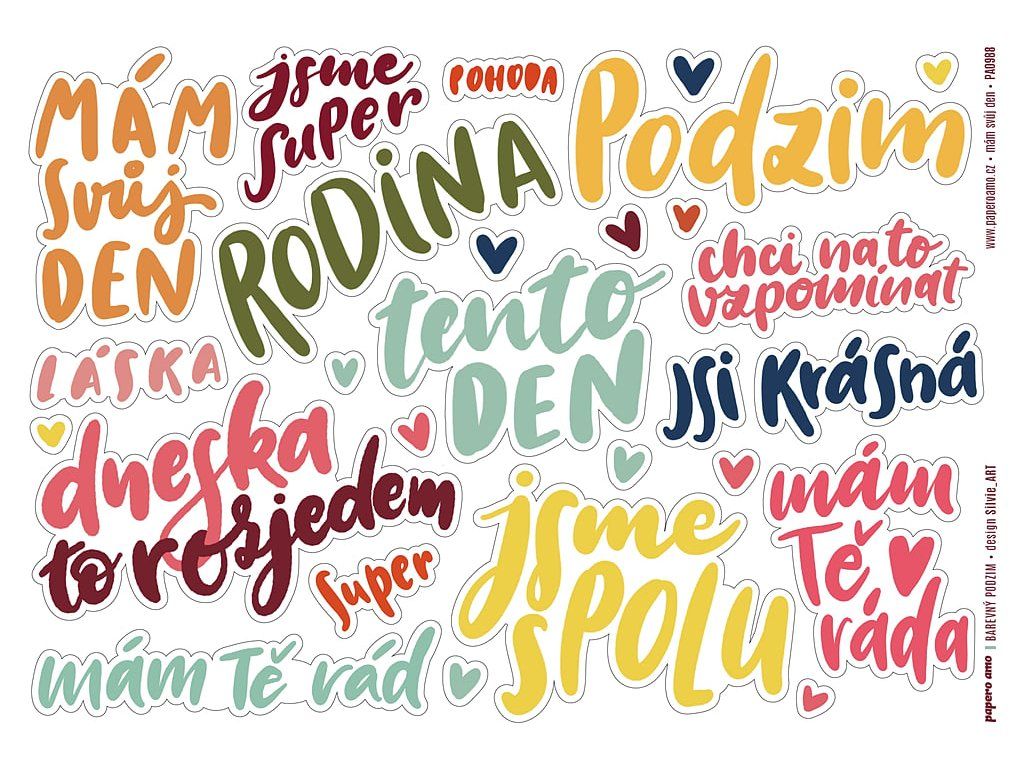 MÁM
svůj
DEN
jsme
super
POHODA
Podzim
RODINA
tento
DEN
chci na to
vzpomínat
LÁSKA
jsi krásná
dneska
to rozjedem
super
jsme
spolu
mám
Tě
ráda
mám Tě rád
www.paperoamo.cz • mám svůj den • PA0988
papero amo | BAREVNÝ PODZIM • design Silvie_ART